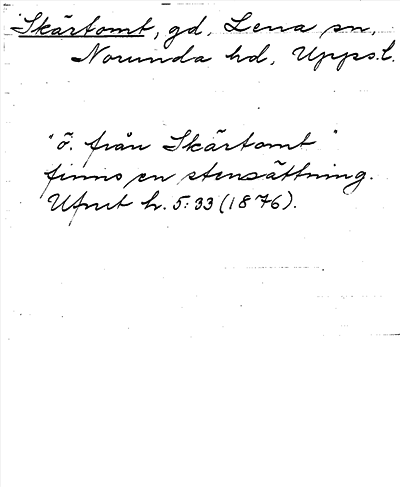 Skärtomt, gd, Lena sn,
Norunda hd, Upps.l.
"ö. från Skärtomt"
finns en stensättning.
Ufmt h. 5:33 (1876).